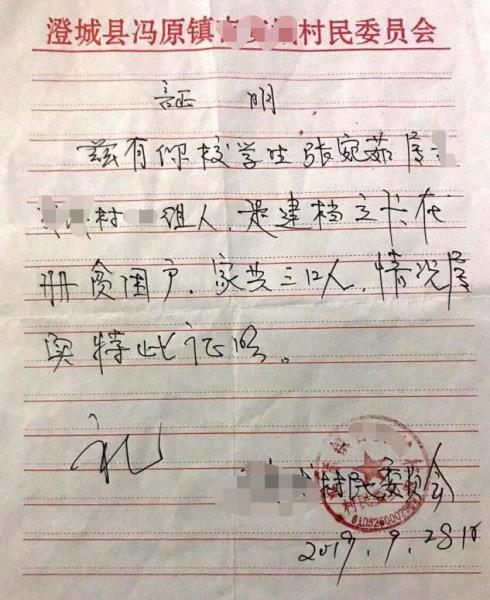 澄城县冯原镇 村民委员会
证 明
兹有你校学生张宛茹属
村 组人,是建档立卡在
册贫困户,家共三口人,情况属
实特此证明。
礼
村民委员会
村民委员会
2019.9.28日